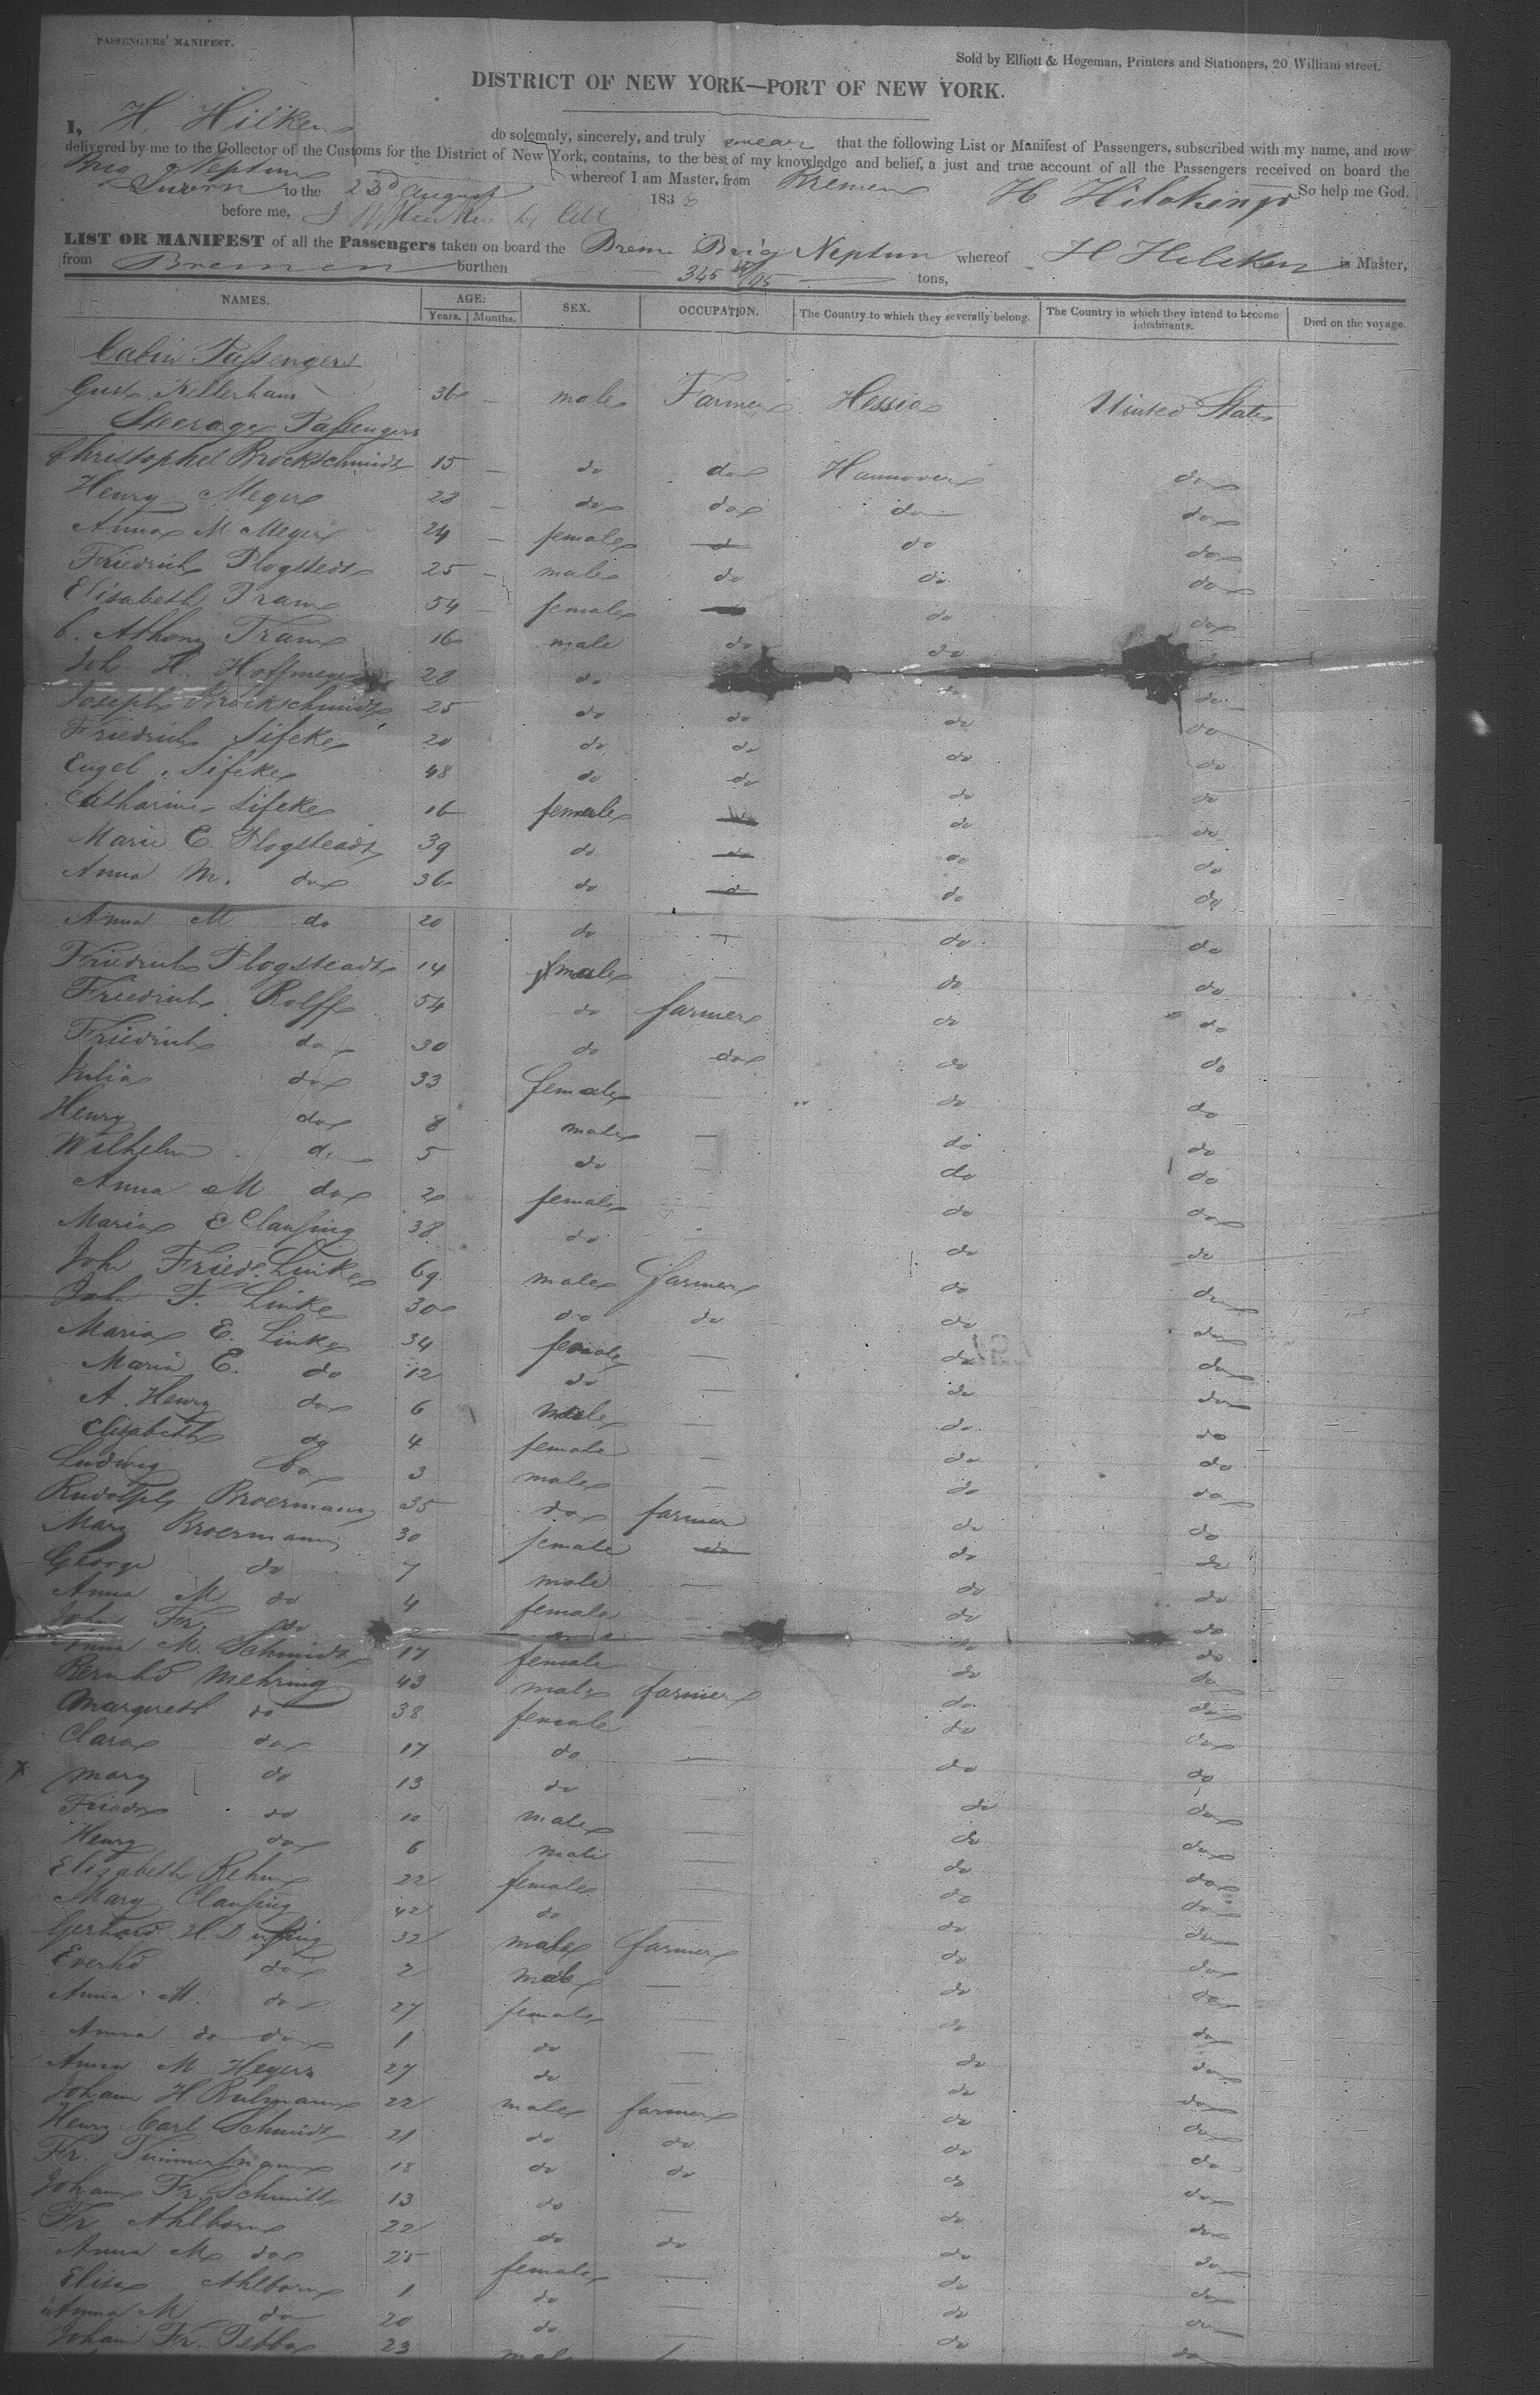 PASSENGERS' MANIFEST.
Sold by Elliott & Hegeman, Printers and Stationers, 20 William street.
DISTRICT OF NEW YORK—PORT OF NEW YORK.
I, H. Hilken do solemnly, sincerely, and truly swear that the following List or Manifest of Passengers, subscribed with my name, and now
delivered by me to the Collector of the Customs for the District of New York, contains, to the best of my knowledge and belief, a just and true account of all the Passengers received on board the
Brig Neptun whereof I am Master, from Bremen H Hilken So help me God.
Sworn to the 23d August 183
before me,
LIST OR MANIFEST of all the Passengers taken on board the Brem Brig Neptun whereof H Hilken is Master,
from Bremen burthen 345 /95 tons,
NAMES. AGE. SEX. OCCUPATION. The Country to which they severally belong. The Country in which they intend to become inhabitants. Died on the voyage.
Years. Months.
Cabin Passengers
Gust. Kellerhaus 36 — male Farmer Hessia United States
Steerage Passengers
Christophel Brockschmidt 15 — do do Hannover do
Henry Meyer 23 — do do do do
Anna M Meyer 24 — female do do do
Friedrich Plogstedt 25 — male do do do
Elisabeth Tram 54 — female do do
C. Athony Tram 16 male do do do
Joh H. Hoffmeyer 28 do do do
Joseph Brockschmidt 25 do do do do
Friedrich Sifeke 20 do do do do
Engel Sifeke 48 do do do do
Catharine Sifeke 16 female do do
Marie E. Plogsteadt 39 do do do do
Anna M. do 36 do do do do
Anna M do 20 do — do do
Friedrich Plogsteadt 14 male — do do
Friedrich Rolff 54 do farmer do do
Friedrich do 30 do do do do
Julia do 33 female — do do
Henry do 8 male — do do
Wilhelm do 5 do do do
Anna M do 2 female do do
Maria E Clausing 38 do do do
Joh Friedr. Linke 69 male farmer do do
Joh F. Linke 30 do do do do
Maria E. Linke 34 female — do do
Maria E. do 12 do — do do
A. Henry do 6 male — do do
Elisabeth do 4 female — do do
Ludwig do 3 male — do do
Rudolph Broermann 35 do farmer do do
Mary Broermann 30 female do do do
George do 7 male — do do
Anna M do 4 female do do
Joh Fr. do do do
Anna M. Schmidt 17 female do do
Bernhd Mehring 43 male farmer do do
Margreth do 38 female do do
Clara do 17 do — do do
Mary do 13 do — do do
Friedr do 10 male — do do
Henry do 6 male — do do
Elizabeth Rehm 22 female — do do
Mary Clausing 42 do — do do
Gerhard H. 32 male farmer do do
Everhd do 2 male — do do
Anna M. do 27 female — do do
Anna do do 1 do — do do
Anna M Heyer 27 do — do do
Johann H. 22 male farmer do do
Henry Carl Schmidt 21 do do do do
Fr. 18 do do do do
Johann Fr. Schmidt 13 do — do do
Fr Ahlborn 22 do do do do
Anna M do 25 female — do do
Elise Ahlborn 1 do — do do
Anna M do 20 do — do do
Johann Fr. 23 male do do